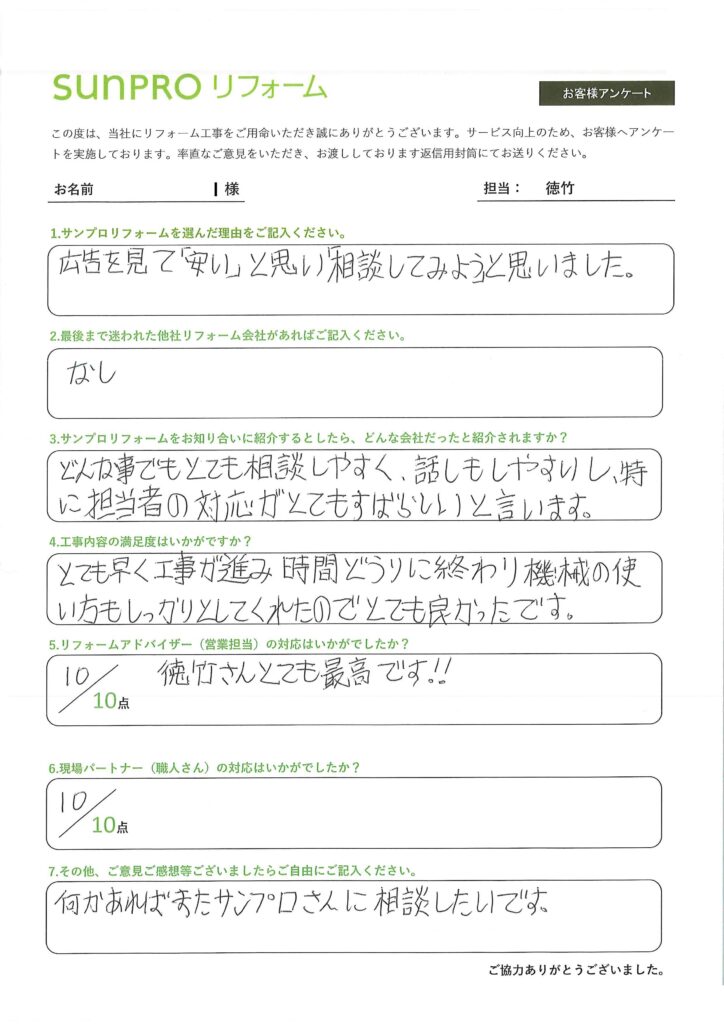 SUNPRO リフォーム
お客様アンケート
この度は、当社にリフォーム工事をご用命いただき誠にありがとうございます。サービス向上のため、お客様へアンケー
トを実施しております。率直なご意見をいただき、お渡ししております返信用封筒にてお送りください。
お名前 様 担当： 徳竹
1.サンプロリフォームを選んだ理由をご記入ください。
広告を見て「安い」と思い「相談してみよう」と思いました。
2.最後まで迷われた他社リフォーム会社があればご記入ください。
なし
3.サンプロリフォームをお知り合いに紹介するとしたら、どんな会社だったと紹介されますか？
どんな事でもとても相談しやすく、話しもしやすいし、特
に担当者の対応がとてもすばらしいと言います。
4.工事内容の満足度はいかがですか？
とても早く工事が進み時間どうりに終わり機械の使
い方もしっかりとしてくれたのでとても良かったです。
5.リフォームアドバイザー（営業担当）の対応はいかがでしたか？
10/10点 徳竹さんとても最高です!!
6.現場パートナー（職人さん）の対応はいかがでしたか？
10/10点
7.その他、ご意見ご感想等ございましたらご自由にご記入ください。
何かあればまたサンプロさんに相談したいです。
ご協力ありがとうございました。